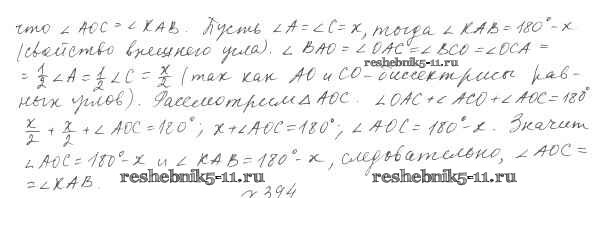 что ∠AOC = ∠KAB. Пусть ∠A = ∠C = x, тогда ∠KAB = 180° - x
(свойство внешнего угла). ∠BAO = ∠OAC = ∠BCO = ∠OCA =
reshebnik5-11.ru
= 1/2 ∠A = 1/2 ∠C = x/2 (так как AO и CO - биссектрисы рав-
ных углов). Рассмотрим △AOC. ∠OAC + ∠ACO + ∠AOC = 180°
x/2 + x/2 + ∠AOC = 180°; x + ∠AOC = 180°; ∠AOC = 180° - x. Значит
∠AOC = 180° - x и ∠KAB = 180° - x, следовательно, ∠AOC =
= ∠KAB.
reshebnik5-11.ru reshebnik5-11.ru
№ 394